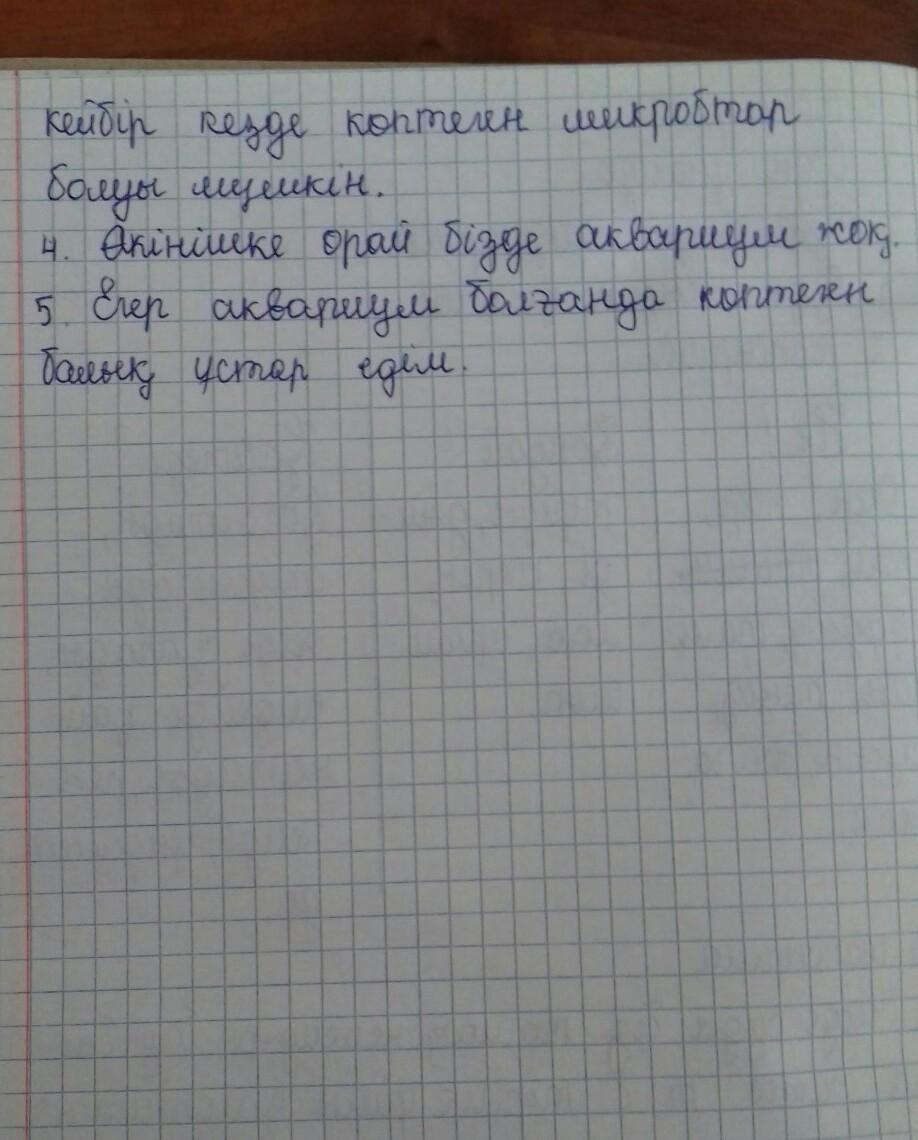 кейбір кезде коптеген микробтар
болуы мумкін.
4. Өкінішке орай бізде аквариум жоқ.
5. Егер аквариум болғанда коптеген
балық ұстар едім.